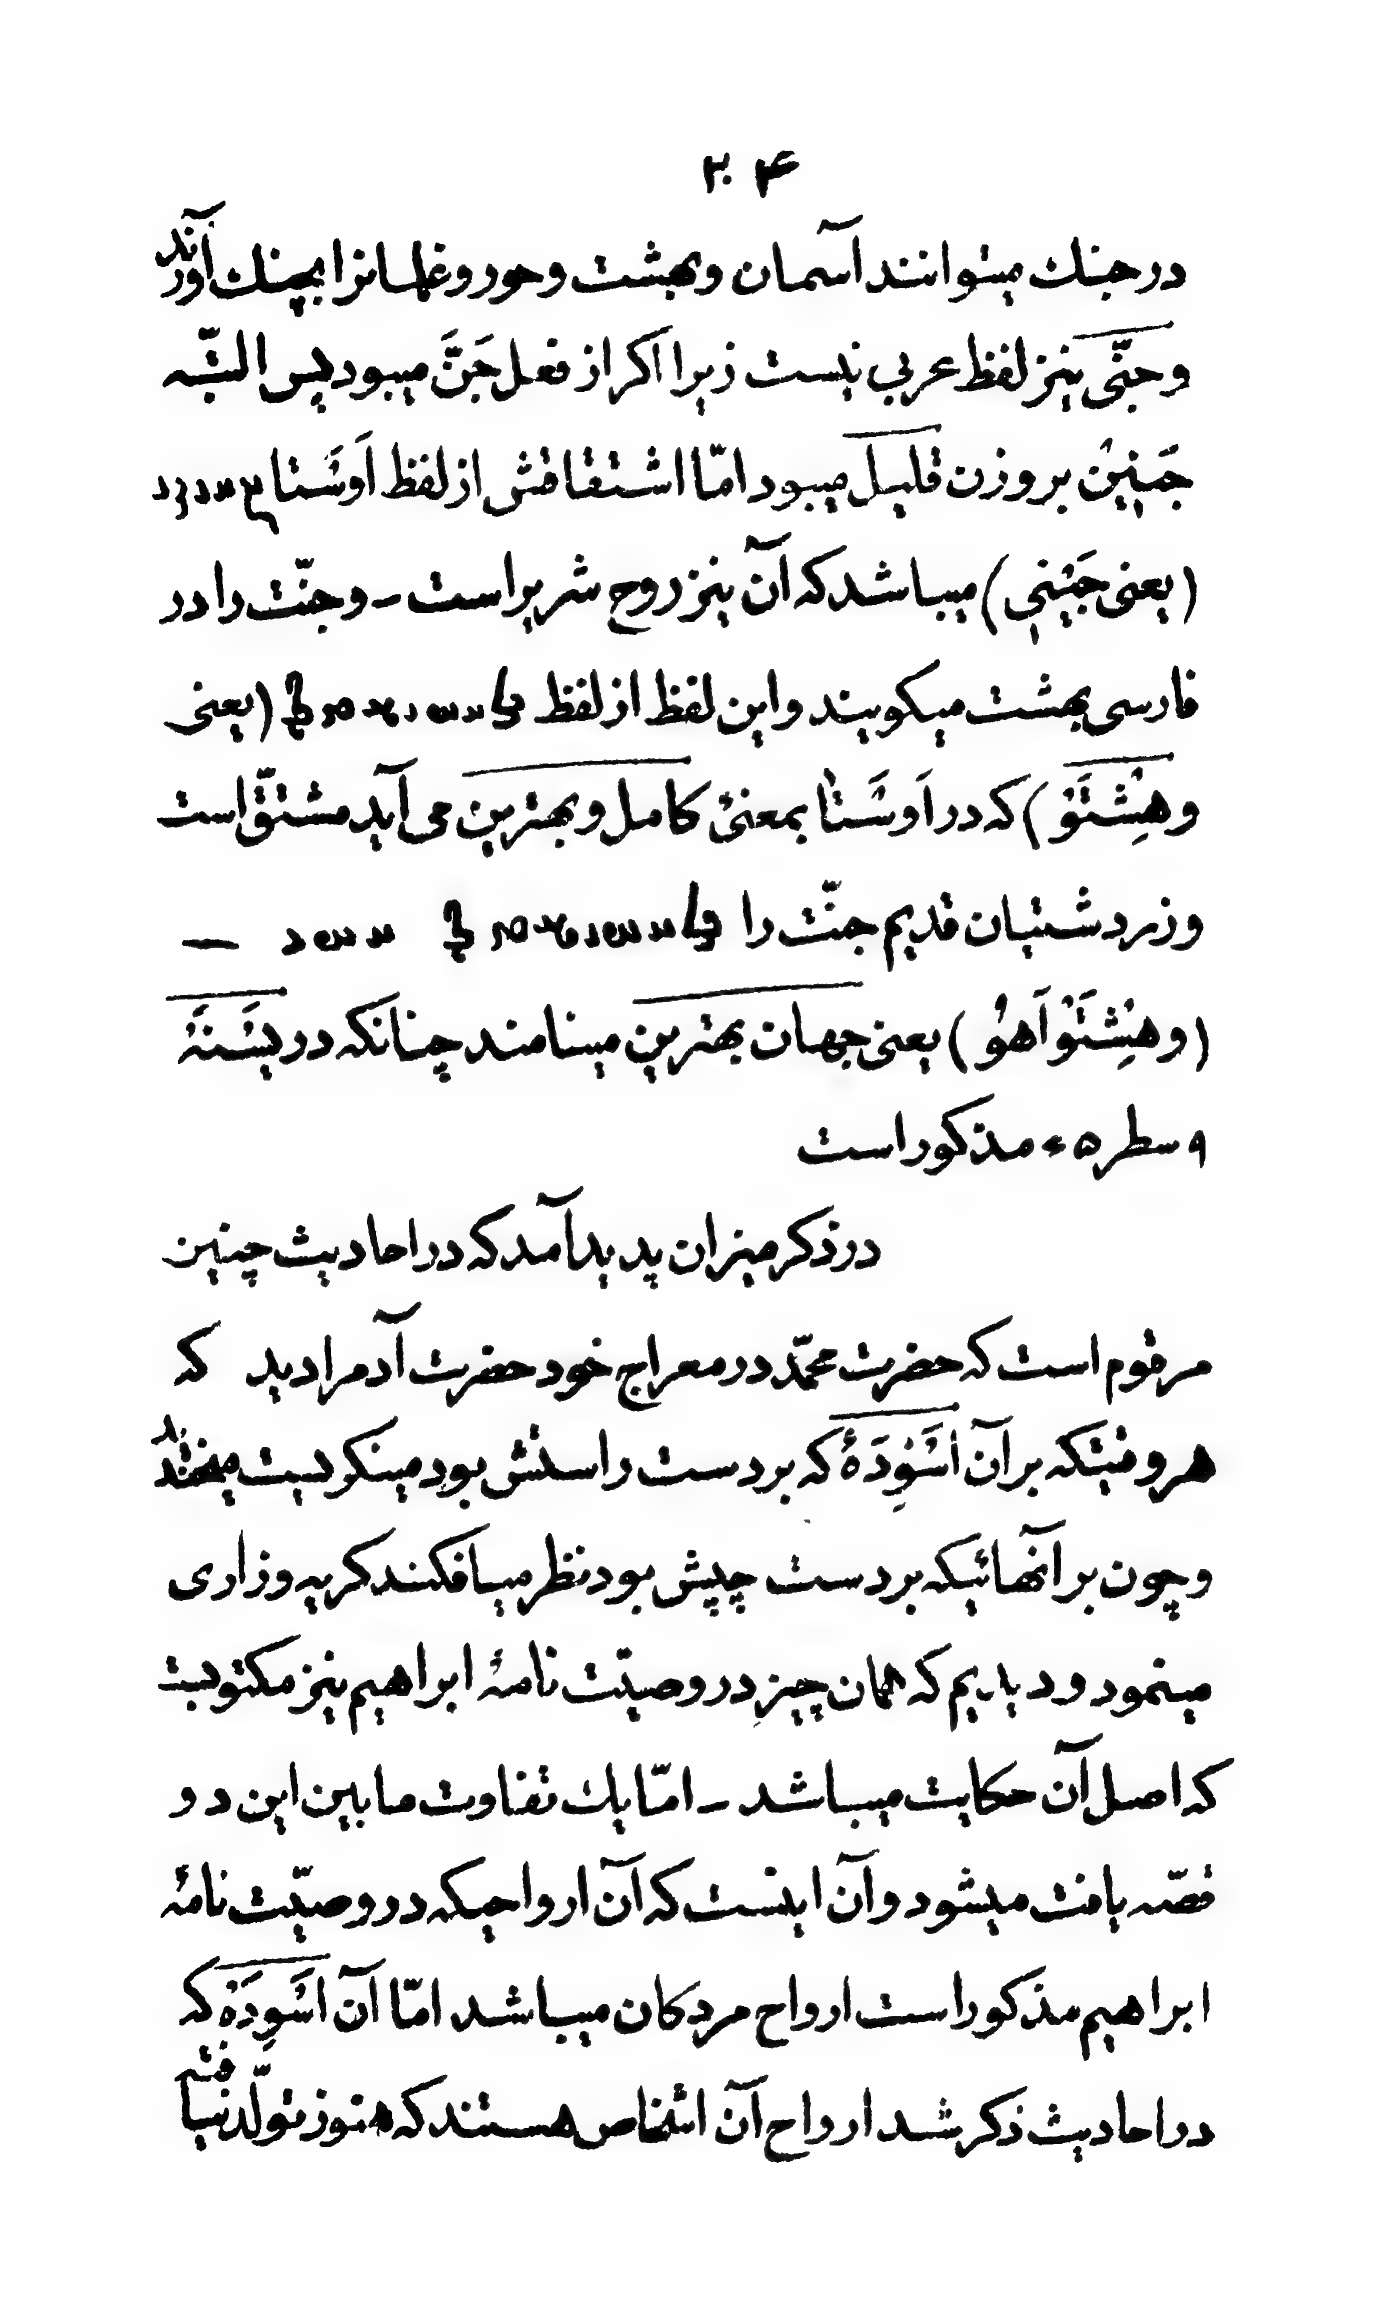 ۲۰۴
در جنك میتوانند آسمان و بهشت و حور و غلمانرا بچنك آورند
و جنّی نیز لفظ عربي نیست زیرا اكر از فعل جَنَّ میبود پس البتّه
جَنِیْن بر وزن قلیل میبود امّا اشتقاقش از لفظ اَوِسْتا
(یعنی جَیْنی) میباشد كه آن نیز روح شریر است - و جنّت را در
فارسی بهشت میكویند و این لفظ از لفظ (یعنی
وهِشْتَوْ) كه در اَوِسْتا بمعنیٔ كامل و بهترین می آید مشتقّ است
و زردشتیان قدیم جنّت را —
(وهِشْتَوْ اَهوُ) یعنی جهان بهترین مینامند چنانكه در یَسْنَهْ
۹ سطر ۶۵ مذكور است
در ذكر میزان پدید آمد كه در احادیث چنین
مرقوم است كه حضرت محمّد در معراج خود حضرت آدمرا دید كه
هروقتیكه بر آن اَسْوِدَهٔ كه بر دست راستش بود مینكریست میخندید
و چون بر آنهائیكه بر دست چپش بود نظر میافكند كریه و زاری
مینمود و دیدیم كه همان چیز در وصیّت نامهٔ ابراهیم نیز مكتوبست
كه اصل آن حكایت میباشد - امّا یك تفاوت ما بین این دو
قصّه یافت میشود و آن اینست كه آن ارواحیكه در وصیّت نامهٔ
ابراهیم مذكور است ارواح مردكان میباشد امّا آن اَسْوِدَهْ كه
در احادیث ذكر شد ارواح آن اشخاص هستند كه هنوز تولّد نیافته